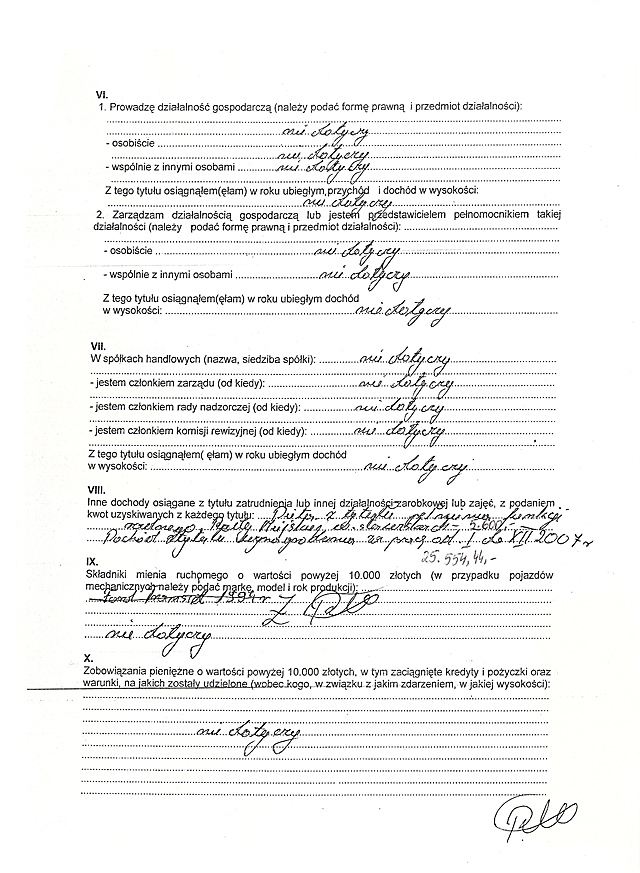 VI.
1. Prowadzę działalność gospodarczą (należy podać formę prawną i przedmiot działalności):
nie dotyczy
- osobiście
nie dotyczy
- wspólnie z innymi osobami nie dotyczy
Z tego tytułu osiągnąłem(ęłam) w roku ubiegłym przychód i dochód w wysokości:
nie dotyczy
2. Zarządzam działalnością gospodarczą lub jestem przedstawicielem pełnomocnikiem takiej
działalności (należy podać formę prawną i przedmiot działalności):
- osobiście nie dotyczy
- wspólnie z innymi osobami nie dotyczy
Z tego tytułu osiągnąłem(ęłam) w roku ubiegłym dochód
w wysokości: nie dotyczy
VII.
W spółkach handlowych (nazwa, siedziba spółki): nie dotyczy
- jestem członkiem zarządu (od kiedy): nie dotyczy
- jestem członkiem rady nadzorczej (od kiedy): nie dotyczy
- jestem członkiem komisji rewizyjnej (od kiedy): nie dotyczy
Z tego tytułu osiągnąłem( ęłam) w roku ubiegłym dochód
w wysokości: nie dotyczy
VIII.
Inne dochody osiągane z tytułu zatrudnienia lub innej działalności zarobkowej lub zajęć, z podaniem
kwot uzyskiwanych z każdego tytułu: Dieta z tytułu pełnienia funkcji
radnego Rady Miejskiej w 2.600,-
Dochód z tytułu wynagrodzenia za pracę od I do XII 2007 r
25.554,44,-
IX.
Składniki mienia ruchomego o wartości powyżej 10.000 złotych (w przypadku pojazdów
mechanicznych należy podać markę, model i rok produkcji):
1994 r
nie dotyczy
X.
Zobowiązania pieniężne o wartości powyżej 10.000 złotych, w tym zaciągnięte kredyty i pożyczki oraz
warunki, na jakich zostały udzielone (wobec kogo, w związku z jakim zdarzeniem, w jakiej wysokości):
nie dotyczy